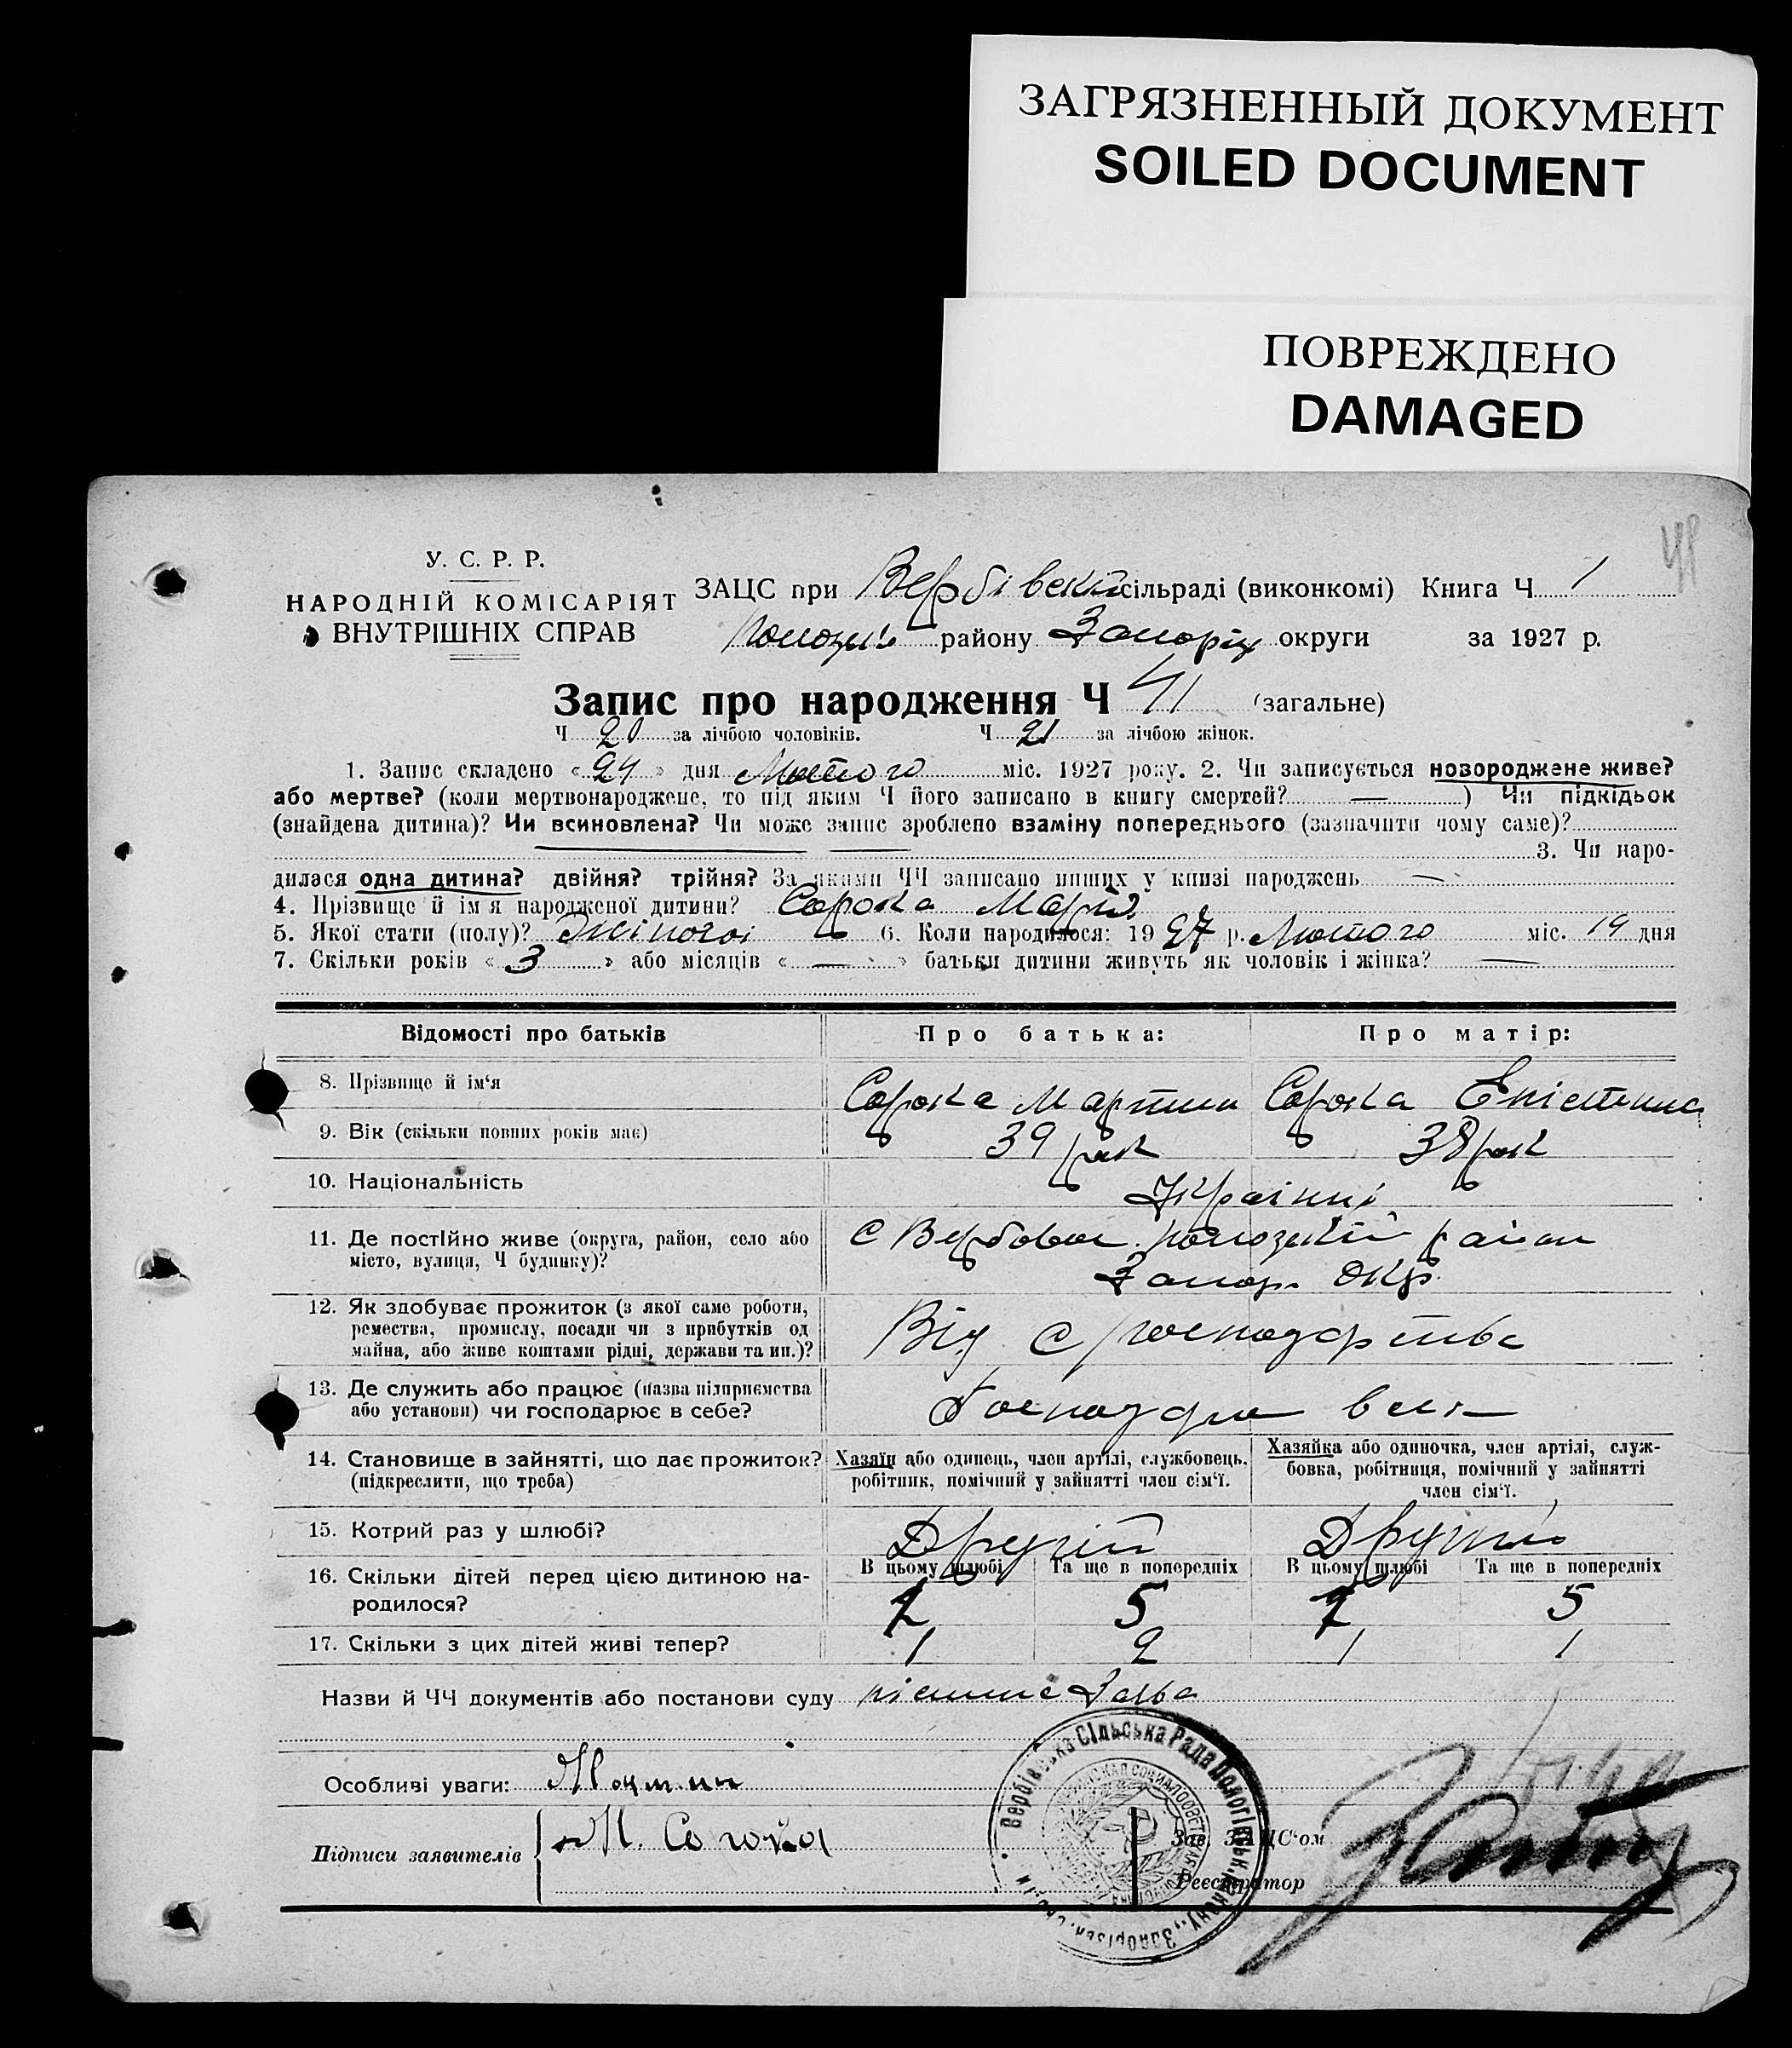 ЗАГРЯЗНЕННЫЙ ДОКУМЕНТ
SOILED DOCUMENT
ПОВРЕЖДЕНО
DAMAGED
У. С. Р. Р.
НАРОДНІЙ КОМІСАРІЯТ
ВНУТРІШНІХ СПРАВ
ЗАЦС при Вербівській сільраді (виконкомі) Книга Ч 1
району Запоріз округи за 1927 р.
Запис про народження Ч 41 (загальне)
Ч 20 за лічбою чоловіків. Ч 21 за лічбою жінок.
1. Запис складено « 24 » дня Лютого міс. 1927 року. 2. Чи записується новороджене живе?
або мертве? (коли мертвонароджене, то під яким Ч його записано в книгу смертей? — ) Чи підкідьок
(знайдена дитина)? Чи всиновлена? Чи може запис зроблено взаміну попереднього (зазначити чому саме)?
3. Чи наро-
дилася одна дитина? двійня? трійня? За якими ЧЧ записано инших у книзі народжень —
4. Прізвище й ім'я народженої дитини? Сорока Марія
5. Якої стати (полу)? Жіночої 6. Коли народилося: 1927 р. Лютого міс. 19 дня
7. Скільки років « 3 » або місяців « — » батьки дитини живуть як чоловік і жінка? —
Відомості про батьків Про батька: Про матір:
8. Прізвище й ім'я Сорока Мартин Сорока
9. Вік (скільки повних років має) 39 рок 38 рок
10. Національність Українці
11. Де постійно живе (округа, район, село або С Вербове Пологзький район
місто, вулиця, Ч будинку)? Запор. окр.
12. Як здобуває прожиток (з якої саме роботи,
ремества, промислу, посади чи з прибутків од Від с господарства
майна, або живе коштами рідні, держави та ин.)?
13. Де служить або працює (назва підприємства
або установи) чи господарює в себе?
14. Становище в зайнятті, що дає прожиток? Хазяїн або одинець, член артілі, службовець, Хазяйка або одиночка, член артілі, служ-
(підкреслити, що треба) робітник, помічний у зайнятті член сім'ї. бовка, робітниця, помічний у зайнятті
член сім'ї.
15. Котрий раз у шлюбі? Другий Другий
В цьому шлюбі Та ще в попередніх В цьому шлюбі Та ще в попередніх
16. Скільки дітей перед цією дитиною на- 5 5
родилося?
17. Скільки з цих дітей живі тепер? 1 2 1 1
Назви й ЧЧ документів або постанови суду
Особливі уваги:
Підписи заявителів М. Сорока
Зав. ЗАЦС'ом
Реєстратор
Вербівська Сільська Рада